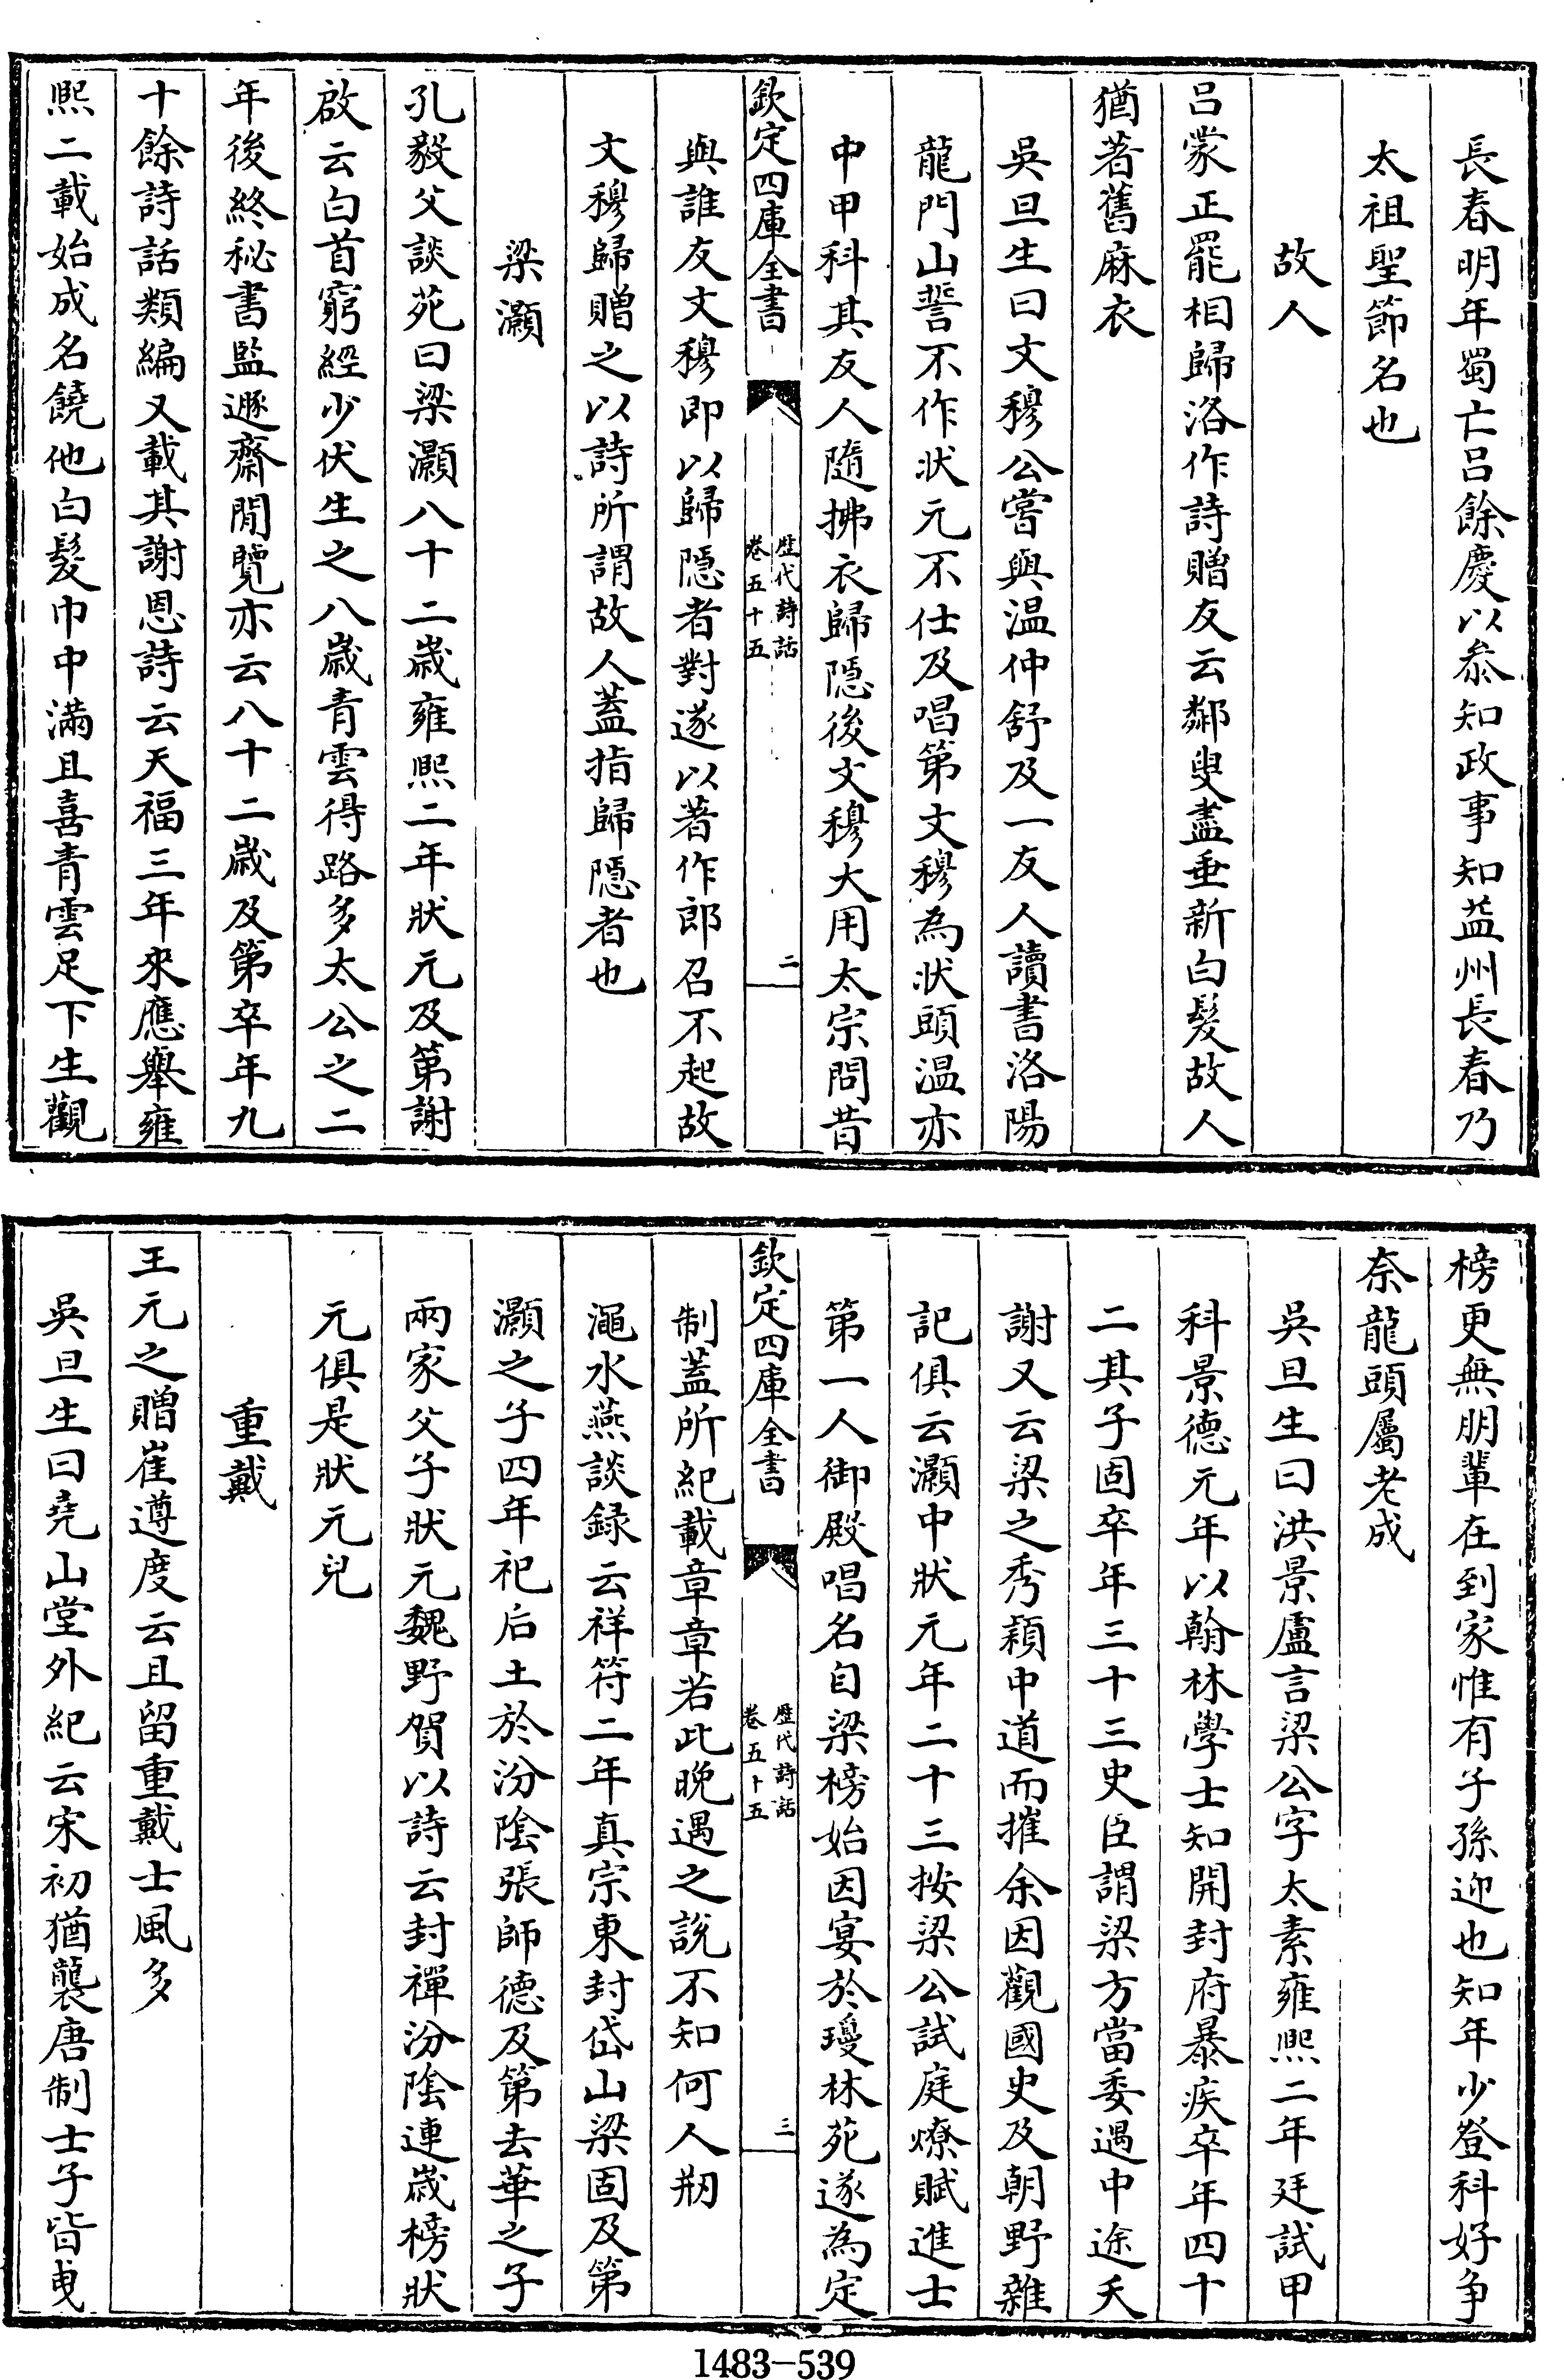 長春明年蜀亡吕餘慶以叅知政事知益州長春乃
太祖聖節名也
故人
吕蒙正罷相歸洛作詩贈友云鄰叟盡垂新白髮故人
猶著舊麻衣
吳旦生曰文穆公嘗與温仲舒及一友人讀書洛陽
龍門山誓不作狀元不仕及唱第文穆為狀頭温亦
中甲科其友人隨拂衣歸隠後文穆大用太宗問昔
欽定四庫全書
歴代詩話
卷五十五
二
與誰友文穆即以歸隠者對遂以著作郎召不起故
文穆歸贈之以詩所謂故人蓋指歸隠者也
梁灝
孔毅父談苑曰梁灝八十二歲雍熙二年狀元及第謝
啟云白首窮經少伏生之八歲青雲得路多太公之二
年後終秘書監遯齋閒覽亦云八十二歲及第卒年九
十餘詩話類編又載其謝恩詩云天福三年來應舉雍
熙二載始成名饒他白髮巾中滿且喜青雲足下生觀
榜更無朋輩在到家惟有子孫迎也知年少登科好争
奈龍頭屬老成
吳旦生曰洪景盧言梁公字太素雍熙二年廷試甲
科景德元年以翰林學士知開封府暴疾卒年四十
二其子固卒年三十三史臣謂梁方當委遇中途夭
謝又云梁之秀頴中道而摧余因觀國史及朝野雜
記俱云灝中狀元年二十三按梁公試庭燎賦進士
第一人御殿唱名自梁榜始因宴於瓊林苑遂為定
欽定四庫全書
歴代詩話
卷五十五
三
制蓋所紀載章章若此晚遇之説不知何人剏
澠水燕談録云祥符二年真宗東封岱山梁固及第
灝之子四年祀后土於汾隂張師德及第去華之子
兩家父子狀元魏野賀以詩云封禪汾隂連歲榜狀
元俱是狀元兒
重戴
王元之贈崔遵度云且留重戴士風多
吳旦生曰堯山堂外紀云宋初猶襲唐制士子皆曵
1483-539